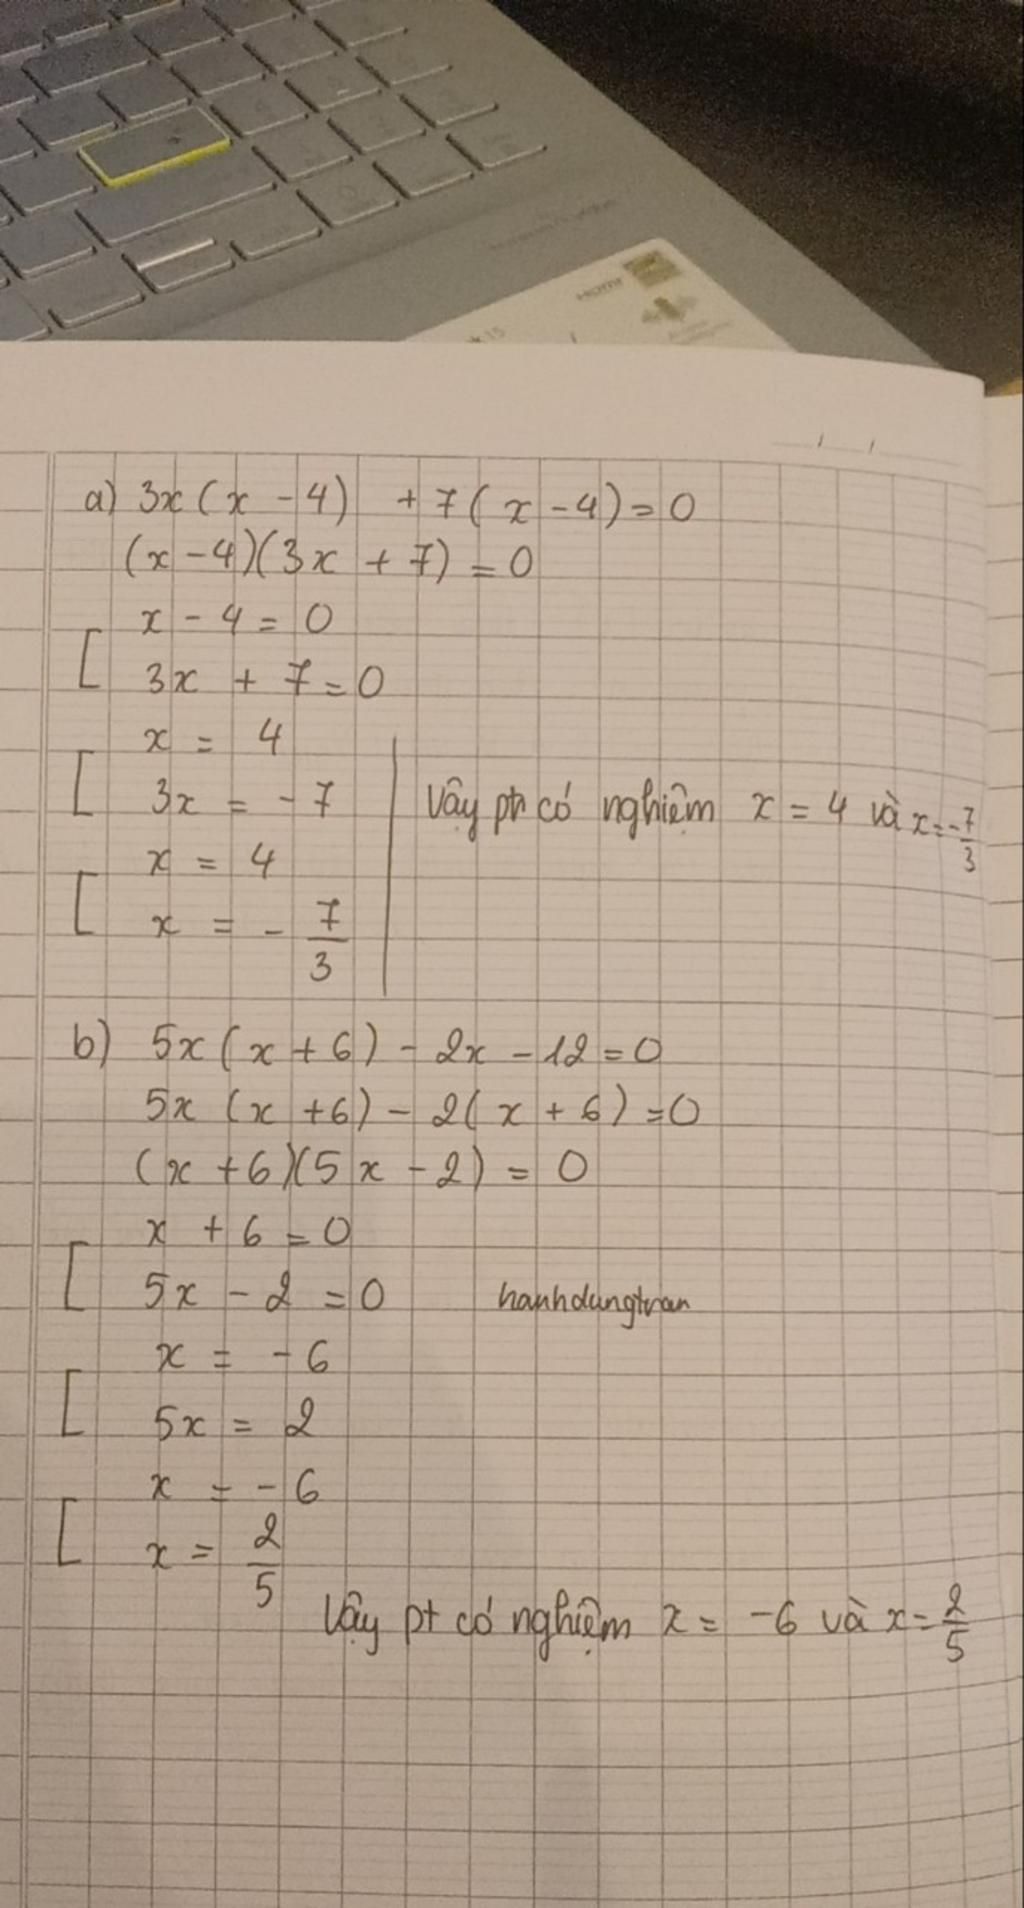 HDMI
a) 3x(x - 4) + 7(x - 4) = 0
(x - 4)(3x + 7) = 0
[ x - 4 = 0
3x + 7 = 0
[ x = 4
3x = - 7
[ x = 4
x = - 7/3
Vậy pt có nghiệm x = 4 và x = -7/3
b) 5x(x + 6) - 2x - 12 = 0
5x (x + 6) - 2(x + 6) = 0
(x + 6)(5x - 2) = 0
[ x + 6 = 0
5x - 2 = 0
hanhdungtran
[ x = - 6
5x = 2
[ x = - 6
x = 2/5
Vậy pt có nghiệm x = -6 và x = 2/5